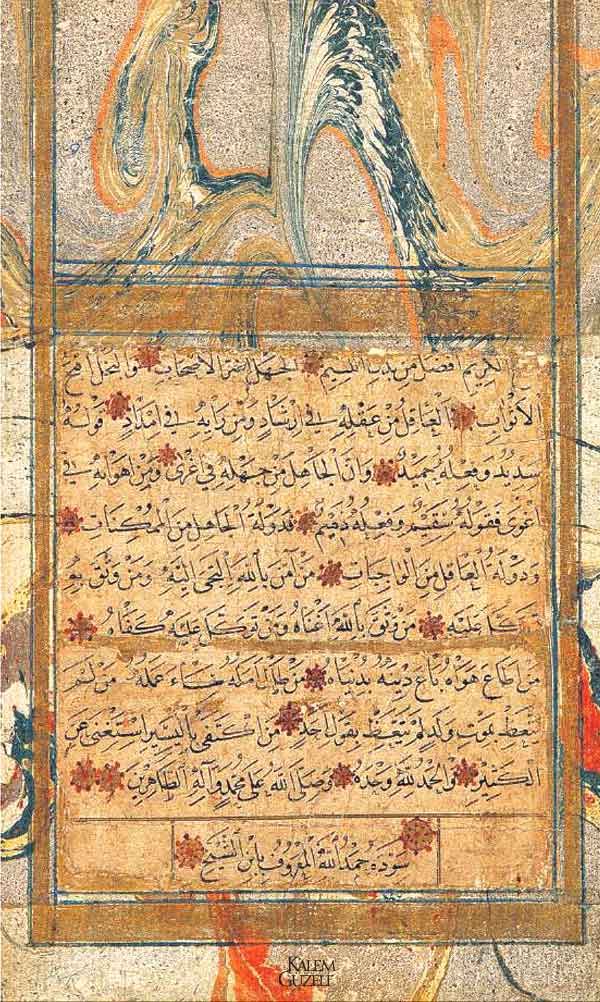 الكريم افضل من بذب اللئيم الجهل اضر الاصحاب والبخل اقبح
الاثواب العاقل من عقله في ارشاد ومن رايه في امداد فقوله
سديد وفعله حميد وان الجاهل من جهله في اغرى ومن اهوائه في
اغوى فقوله سقيم وفعله ذميم فدولة الجاهل من الممكنات
ودولة العاقل من الواجبات من آمن بالله التجى اليه ومن وثق به
توكل عليه من وثق بالله اغناه ومن توكل عليه كفاه
من اطاع هواه باع دينه بدنياه من طال امله ساء عمله من لم
يتعظ بموت ولد لم يتعظ بقول احد من اكتفى باليسير استغنى عن
الكثير والحمد لله وحده وصلى الله على محمد وآله الطاهرين
سوده حمد الله المعروف بابن الشيخ
KALEM
GUZELİ